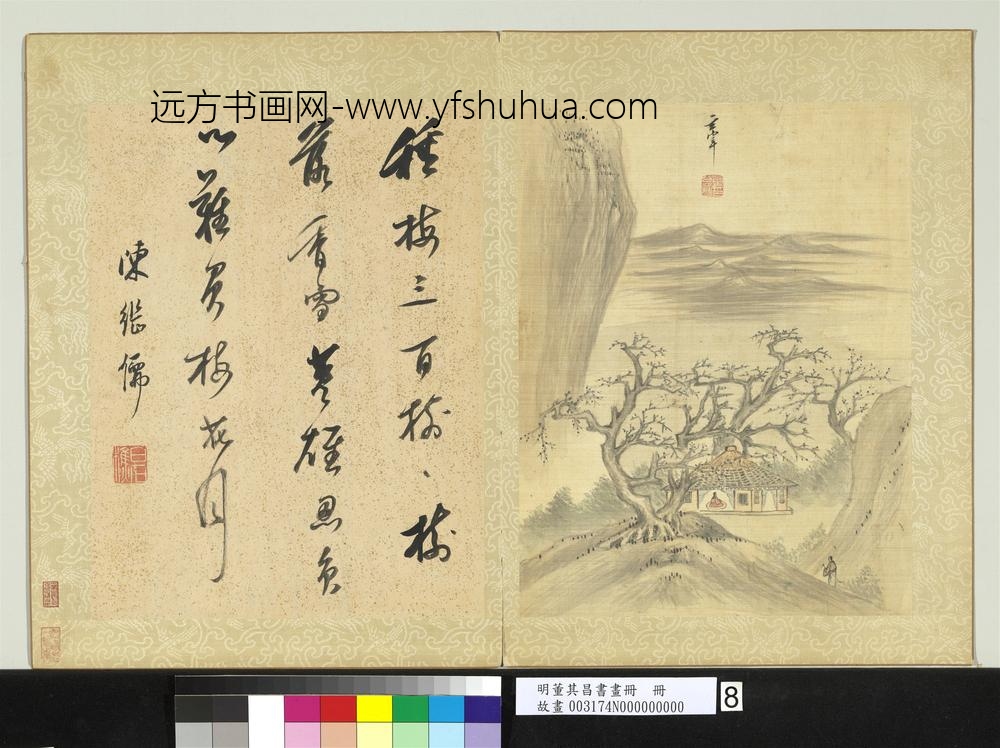 远方书画网-www.yfshuhua.com
玄宰
種梅三百樹、樹
叢香雪英雄易負
心難負梅花月
陳繼儒
明董其昌書畫冊 冊
故畫 003174N000000000
8